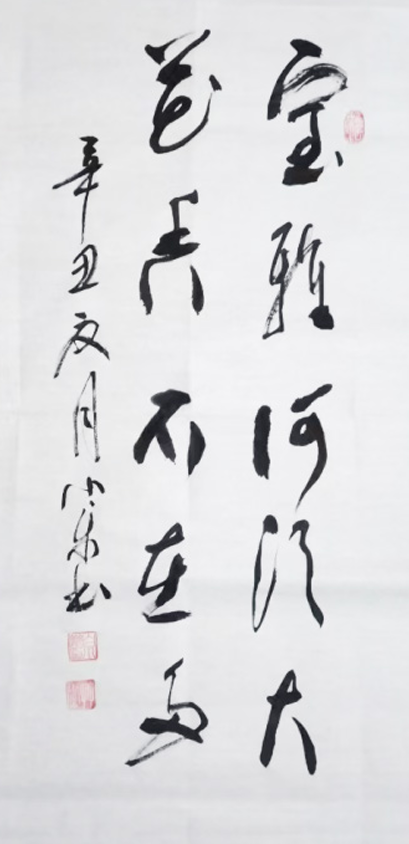 室雅何须大
花香不在多
辛丑夏月小东书